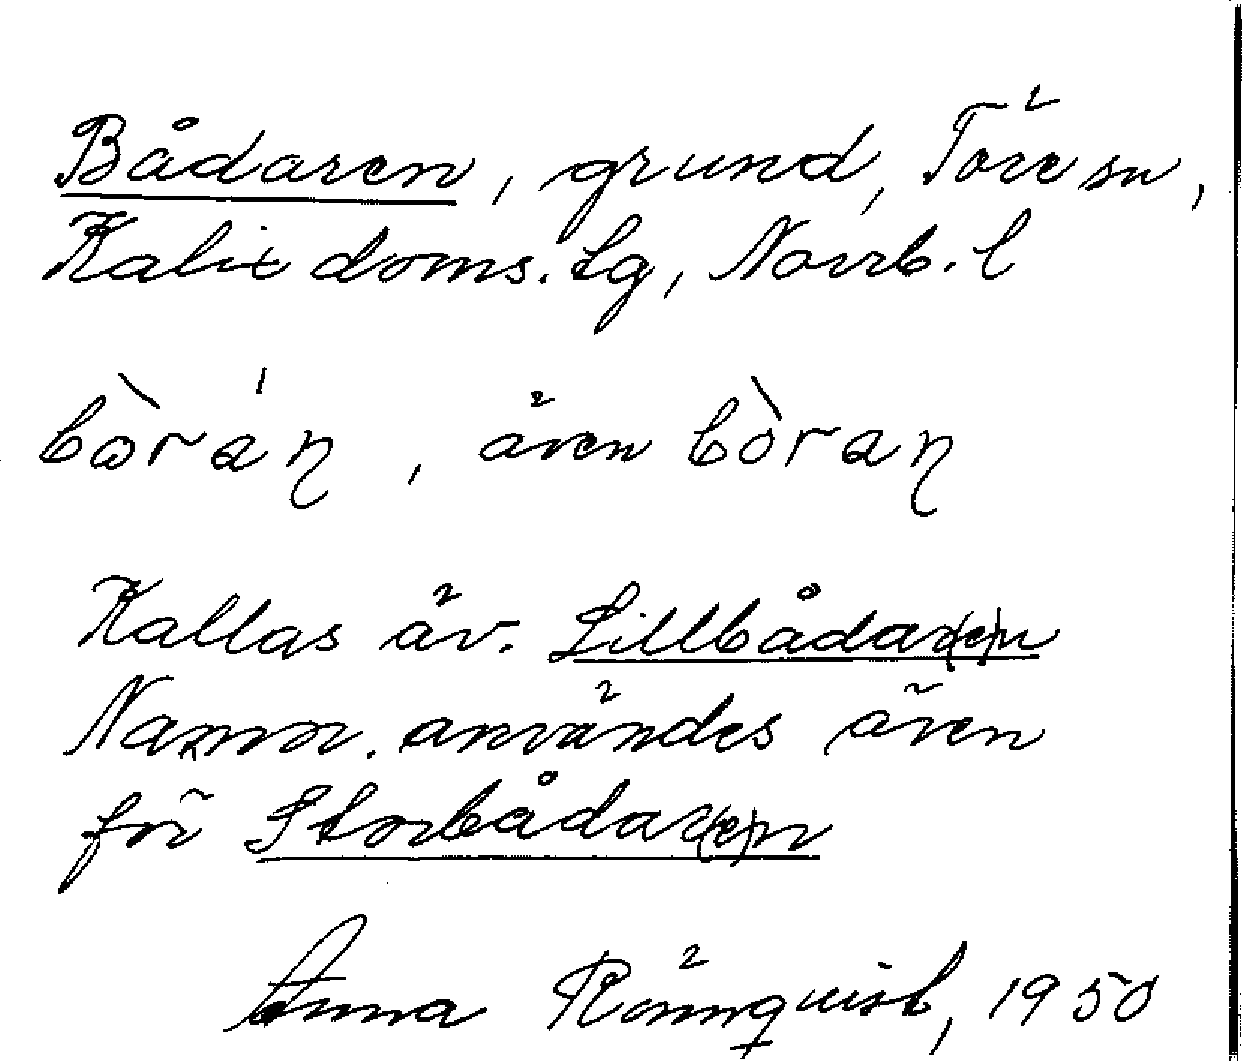 Bådaren, grund, Töre sn,
Kalix doms. tg, Norrb. l
bò̀rán, även bòran
Kallas äv. Lillbådar(e)n
Namn. användes även
för Storbådar(e)n
Anna Rönnquist, 1950